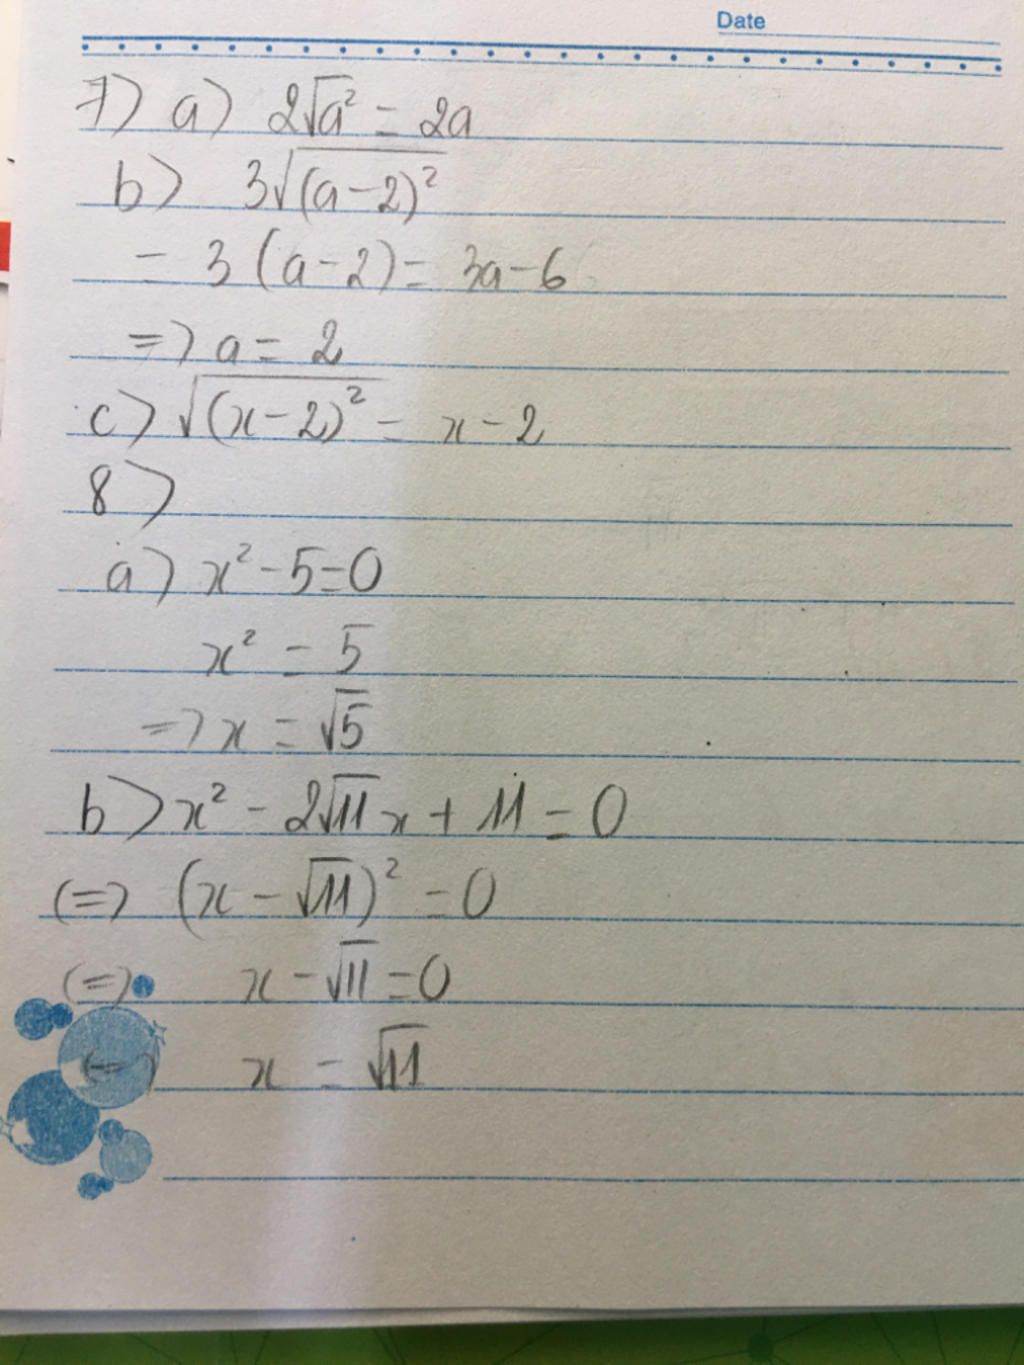 Date
7) a) 2√a² = 2a
b) 3√(a-2)²
= 3 (a-2) = 3a-6
=> a = 2
c) √(x-2)² = x-2
8)
a) x²-5=0
x² = 5
=> x = √5
b) x² - 2√11 x + 11 = 0
(=) (x - √11)² = 0
(=) x - √11 = 0
(=) x = √11